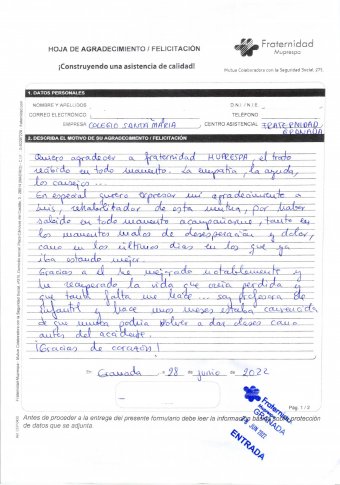 HOJA DE AGRADECIMIENTO / FELICITACIÓN
Fraternidad
Muprespa
¡Construyendo una asistencia de calidad!
Mutua Colaboradora con la Seguridad Social, 275
1. DATOS PERSONALES
NOMBRE Y APELLIDOS
D N I / N I E
CORREO ELECTRÓNICO
TELÉFONO
EMPRESA COLEGIO SANTA MARIA
CENTRO ASISTENCIAL FRATERNIDAD
GRANADA
2. DESCRIBA EL MOTIVO DE SU AGRADECIMIENTO / FELICITACIÓN
Quiero agradecer a fraternidad MUPRESPA, el trato
recibido en todo momento. La empatía, la ayuda,
los consejos...
En especial quiero expresar mi agradecimiento a
Luis, rehabilitador de esta mutua, por haber
sabido en todo momento acompañarme, tanto en
los momentos malos de desesperación y dolor,
como en los últimos días en los que ya
iba estando mejor.
Gracias a él he mejorado notablemente y
he recuperado la vida que creía perdida y
que tanta falta me hace... soy profesora de
infantil y hace unos meses estaba convencida
de que nunca podría volver a dar clases como
antes del accidente.
¡Gracias de corazón!
Granada 28 junio 2022
Pág. 1 / 2
Fraternidad
Muprespa
GRANADA
JUN 2022
ENTRADA
Antes de proceder a la entrega del presente formulario debe leer la información básica sobre protección
de datos que se adjunta.